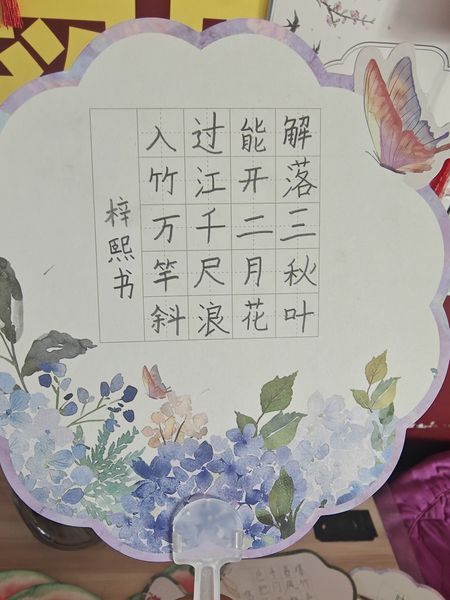 解落三秋叶
能开二月花
过江千尺浪
入竹万竿斜
梓熙书